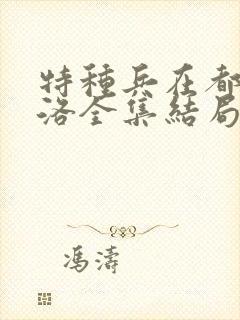 特種兵在都
洛全集結局
馮濤